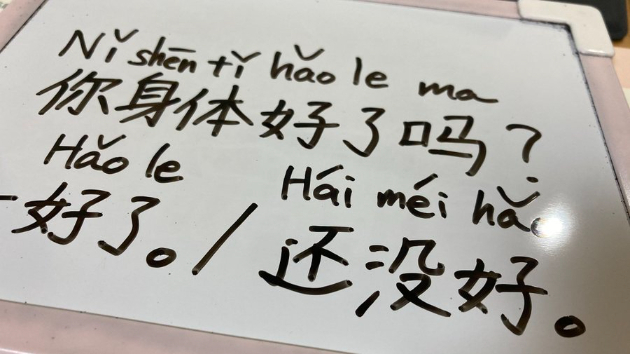 Nǐ shēn tǐ hǎo le ma
你身体好了吗？
Hǎo le Hái méi hǎo
-好了。/还没好。